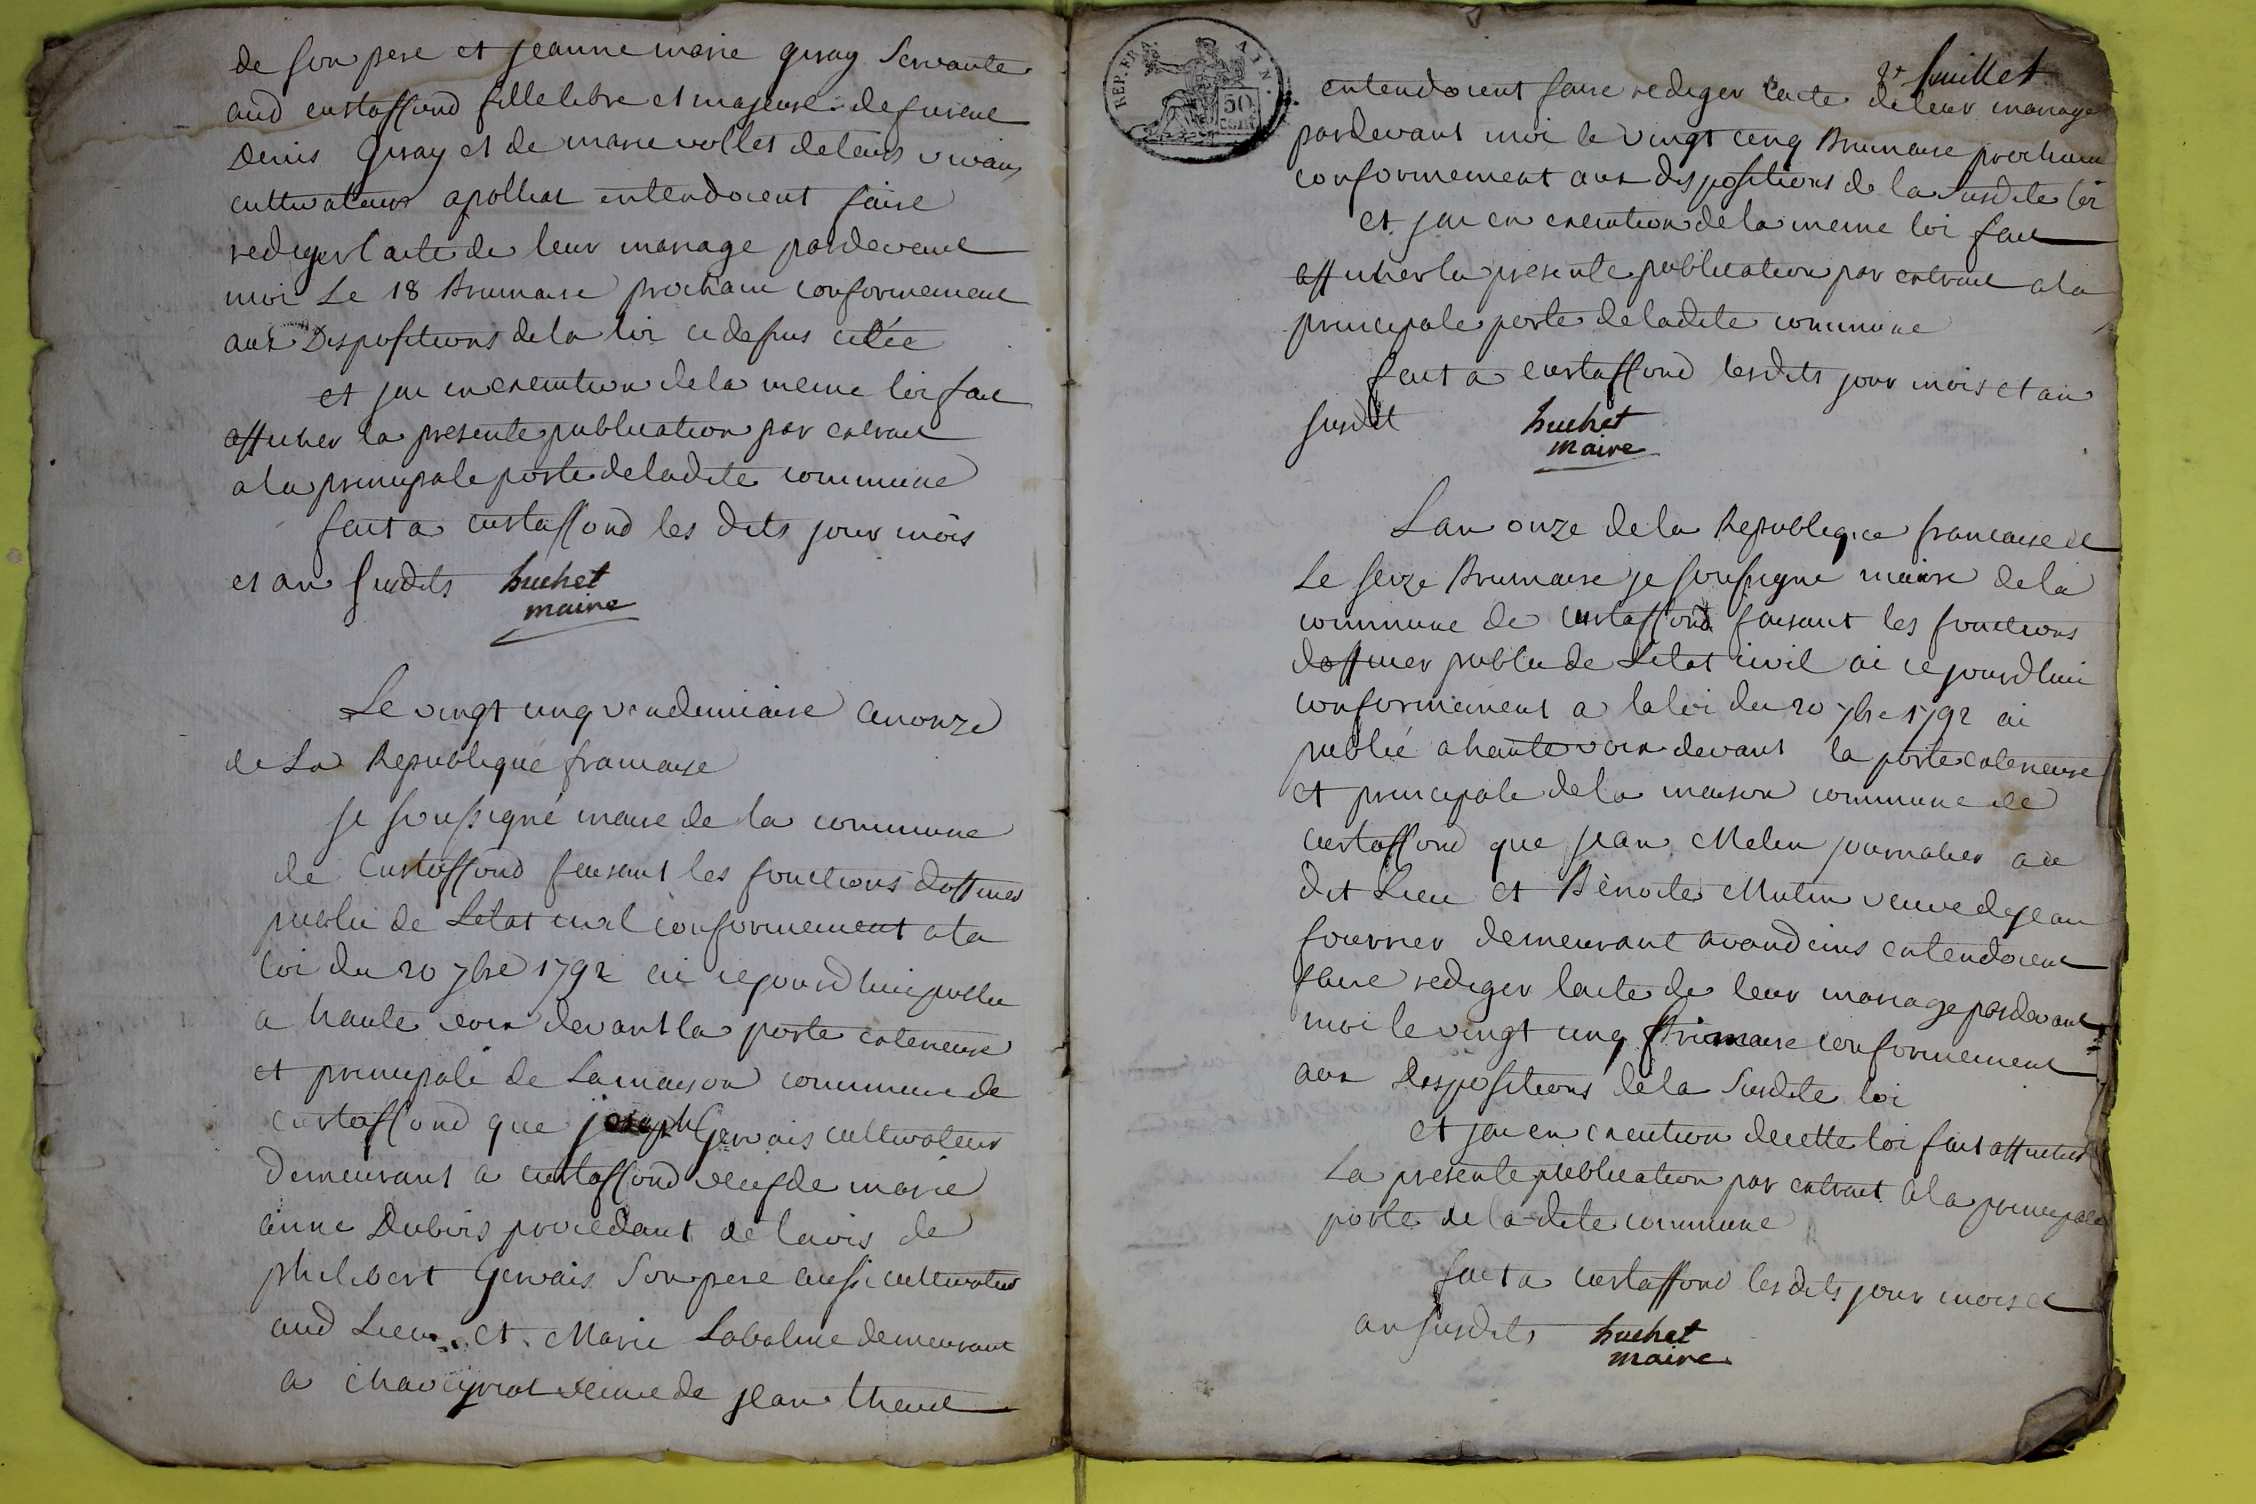 de son pere et jeanne marie guray servante
aud curtaffond fille libre et majeure de furent
Denis guray et de marie vollet de leurs vivans
cultivateurs a polliat entendoient faire
rediger lacte de leur mariage pardevant
moi Le 18 Brumaire prochain conformement
aux Dispositions de la loi ci dessus citée
et jai en execution de la meme loi fait
afficher la presente publication par extrait
a la principale porte de ladite commune
fait a curtaffond les dits jour mois
et an susdits huchet
maire
Le vingt cinq vendemiaire an onze
de La Republique francaise
je soussigné maire de la commune
de Curtaffond faisant les fonctions dofficier
public de Letat civil conformement a la
loi du 20 7bre 1792 ai cejourdhui publié
a haute voix devant la porte exterieure
et principale de La maison commune de
curtaffond que joseph Gervais cultivateur
Demeurant a curtaffond veuf de marie
anne Dubois procedant de lavis de
philibert Gervais Son pere aussi cultivateur
aud Lieu et Marie Labalme demeurant
a chaveyriat veuve de jean
REP. FRA.
AIN.
50
CENT
8e feuillet
entendoient faire rediger lacte de leur mariage
pardevant moi le vingt cinq Brumaire prochain
conformement aux dispositions de la susdite loi
et jai en execution de la meme loi fait
afficher la presente publication par extrait a la
principale porte de ladite commune
fait a curtaffond lesdits jour mois et an
susdit huchet
maire
Lan onze de la Republique francaise et
Le seize Brumaire je soussigne maire de la
commune de curtaffond faisant les fonctions
dofficier public de Letat civil ai cejourdhui
conformement a la loi du 20 7bre 1792 ai
publié a haute voix devant la porte exterieure
et principale de la maison commune de
curtaffond que jean Melin journalier au
dit Lieu et Benoite Mutin veuve de jean
fourrier demeurant a vandeins entendoient
faire rediger lacte de leur mariage pardevant
moi le vingt cinq Brimaire conformement
aux Dispositions de la Susdite loi
et jai en execution de cette loi fait afficher
La presente publication par extrait a la principale
porte de la dite commune
fait a curtaffond les dits jour mois et
an susdits huchet
maire